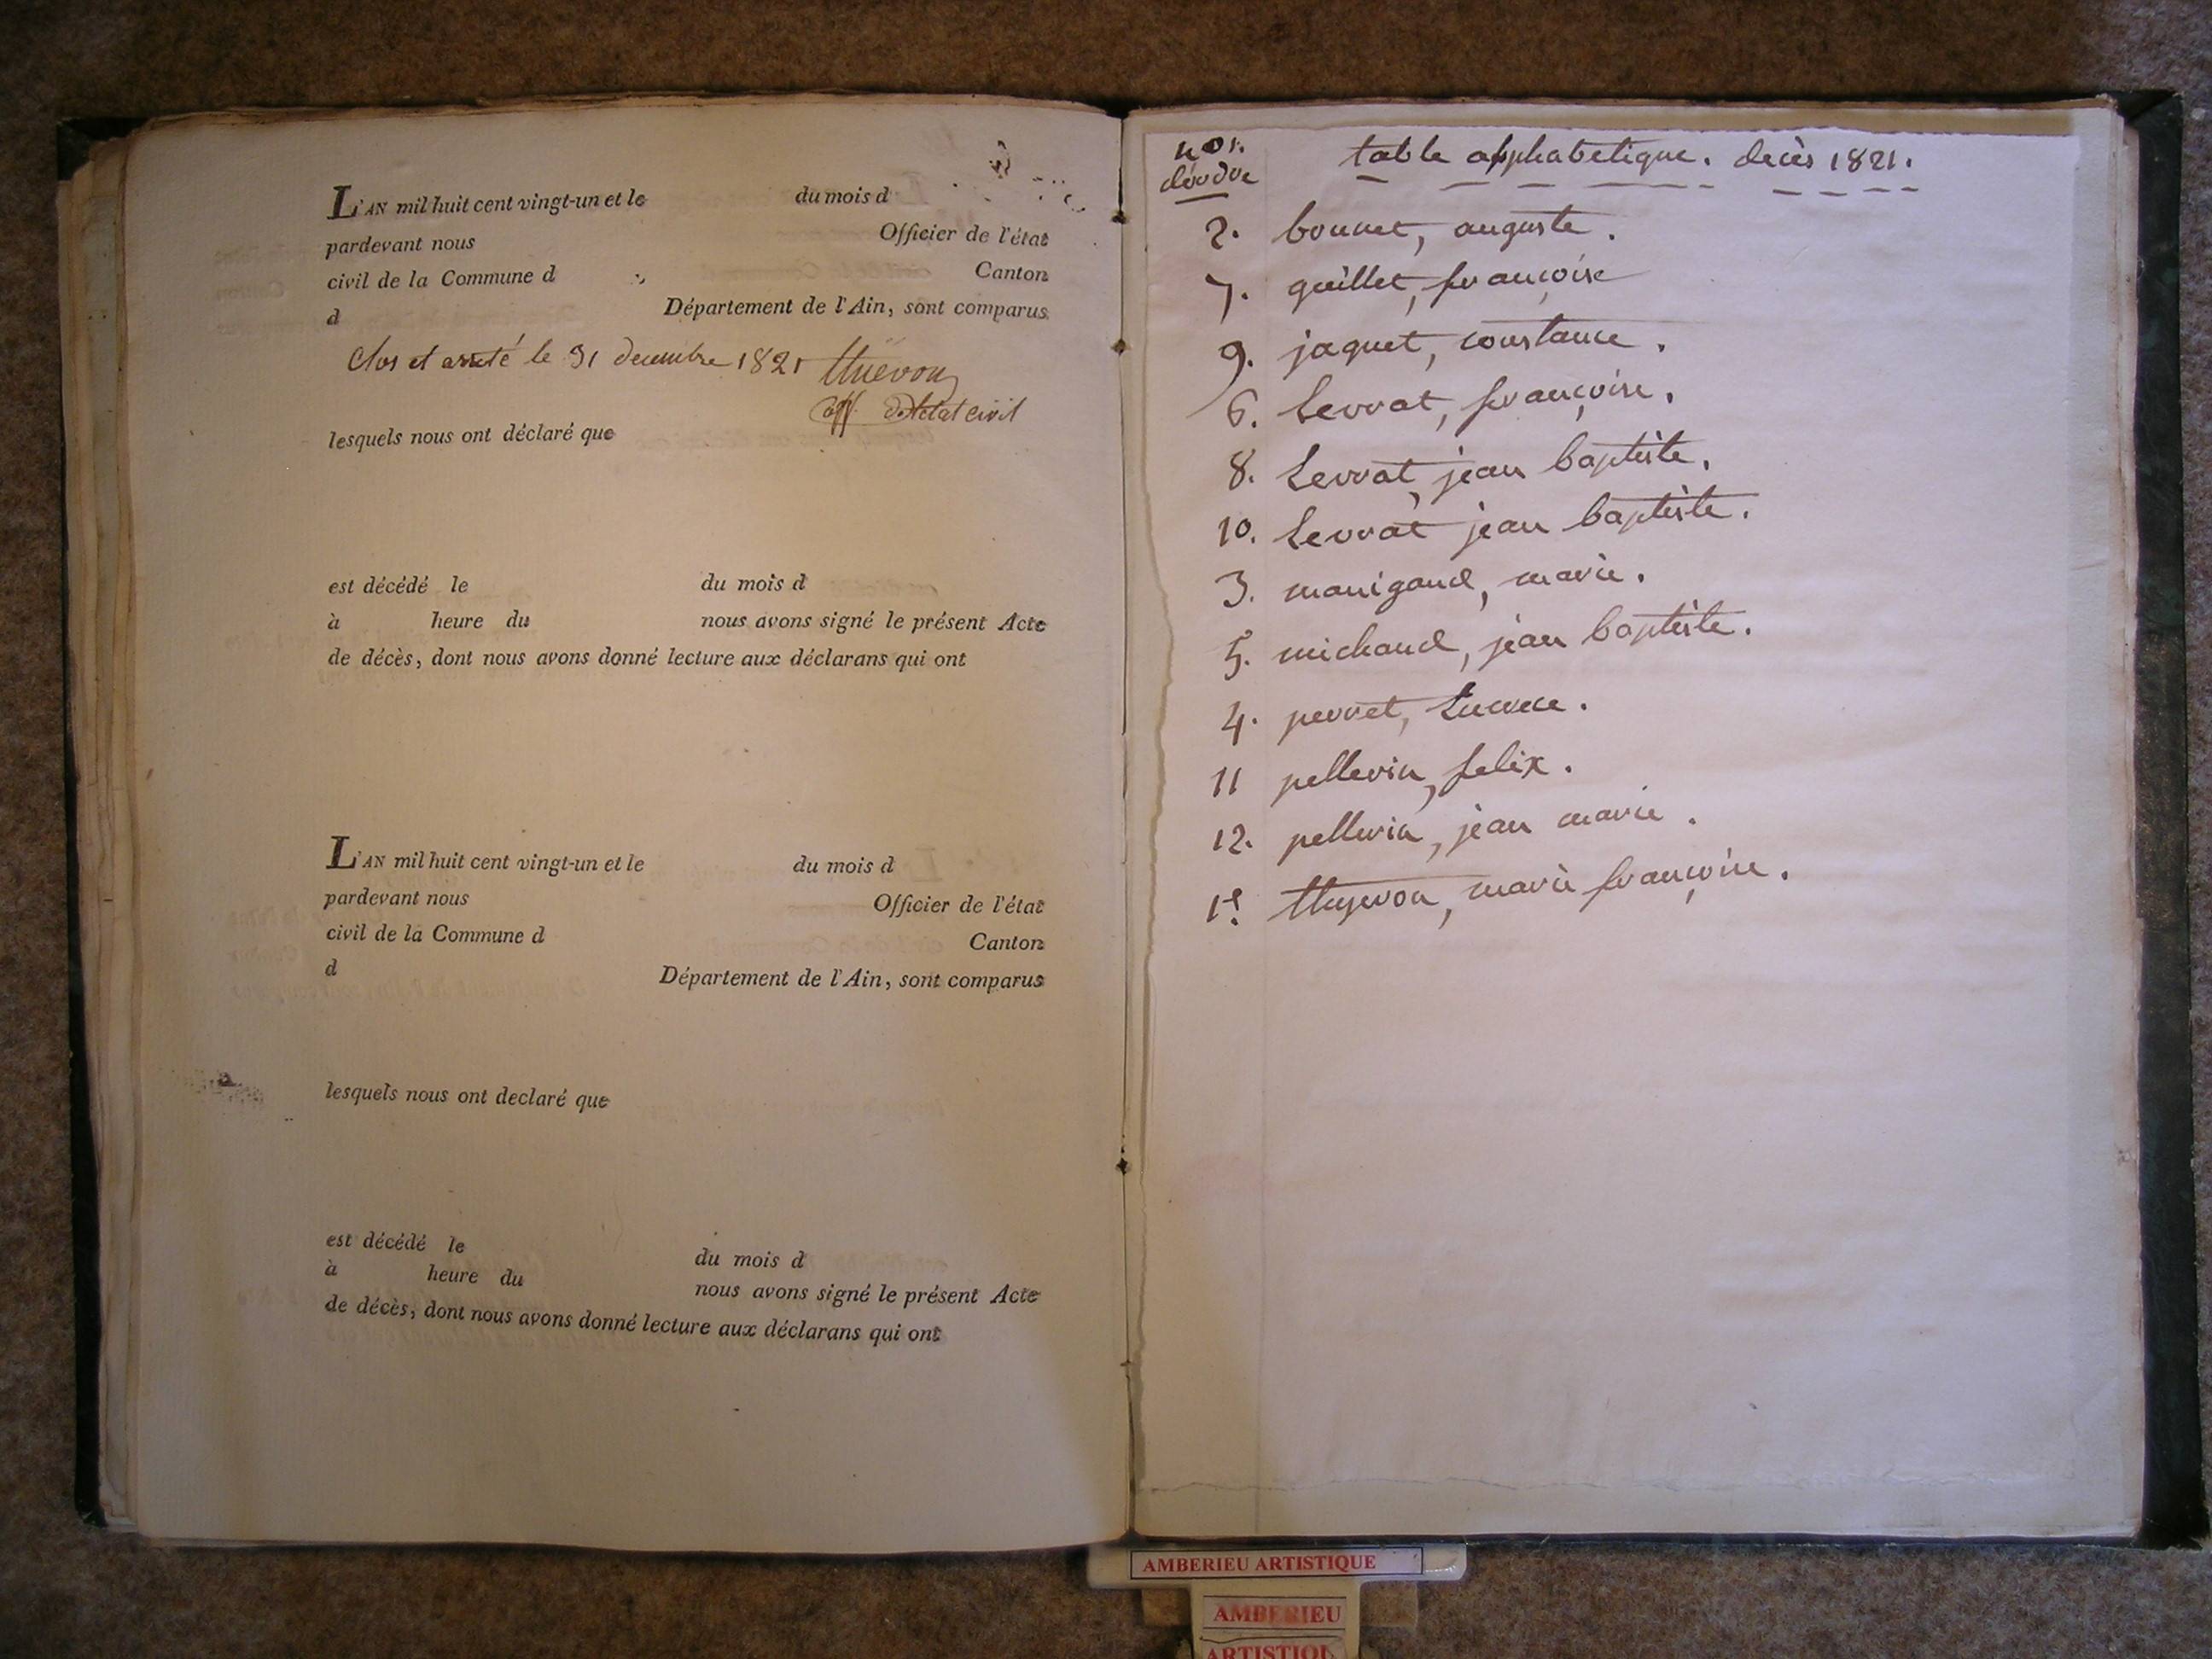 L'AN mil huit cent vingt-un et le du mois d
pardevant nous Officier de l'état
civil de la Commune d Canton
d Département de l'Ain, sont comparus
Clos et arreté le 31 decembre 1821
off. de l'etat civil
lesquels nous ont déclaré que
est décédé le du mois d
à heure du nous avons signé le présent Acte
de décès, dont nous avons donné lecture aux déclarans qui ont
L'AN mil huit cent vingt-un et le du mois d
pardevant nous Officier de l'état
civil de la Commune d Canton
d Département de l'Ain, sont comparus
lesquels nous ont declaré que
est décédé le du mois d
à heure du nous avons signé le présent Acte
de décès, dont nous avons donné lecture aux déclarans qui ont
nos. table alphabetique. decès 1821.
d'ordre
2. bonnet, auguste.
7. guillet, françoise
9. jaquet, constance.
6. Serrat, françoise.
8. Serrat, jean baptiste.
10. Serrat jean baptiste.
3. manigand, marie.
5. michaud, jean baptiste.
4. perret, Lucrece.
11 pellerin, felix.
12. pellerin, jean marie.
1er. marie françoise.
AMBERIEU ARTISTIQUE
AMBERIEU